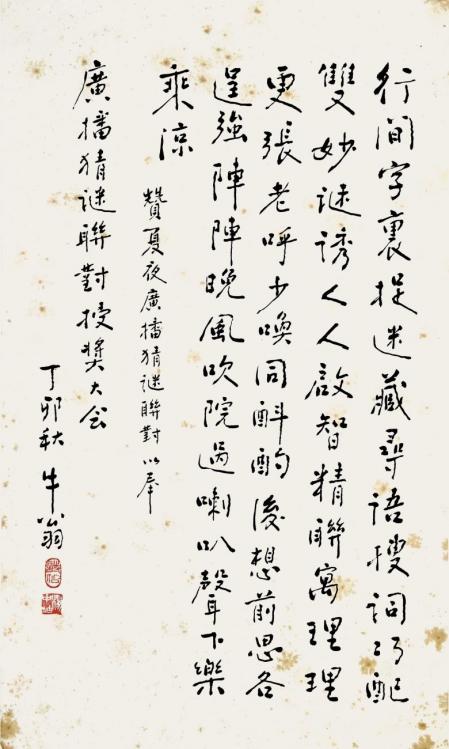 行間字裏捉迷藏尋語搜詞巧配
雙妙謎誘人人啟智精聯寓理理
更張老呼少喚同斟酌後想前思各
逞強陣陣晚風吹院過喇叭聲下樂
乘涼
贊夏夜廣播猜謎聯對以奉
廣播猜謎聯對授獎大会
丁卯秋 牛翁